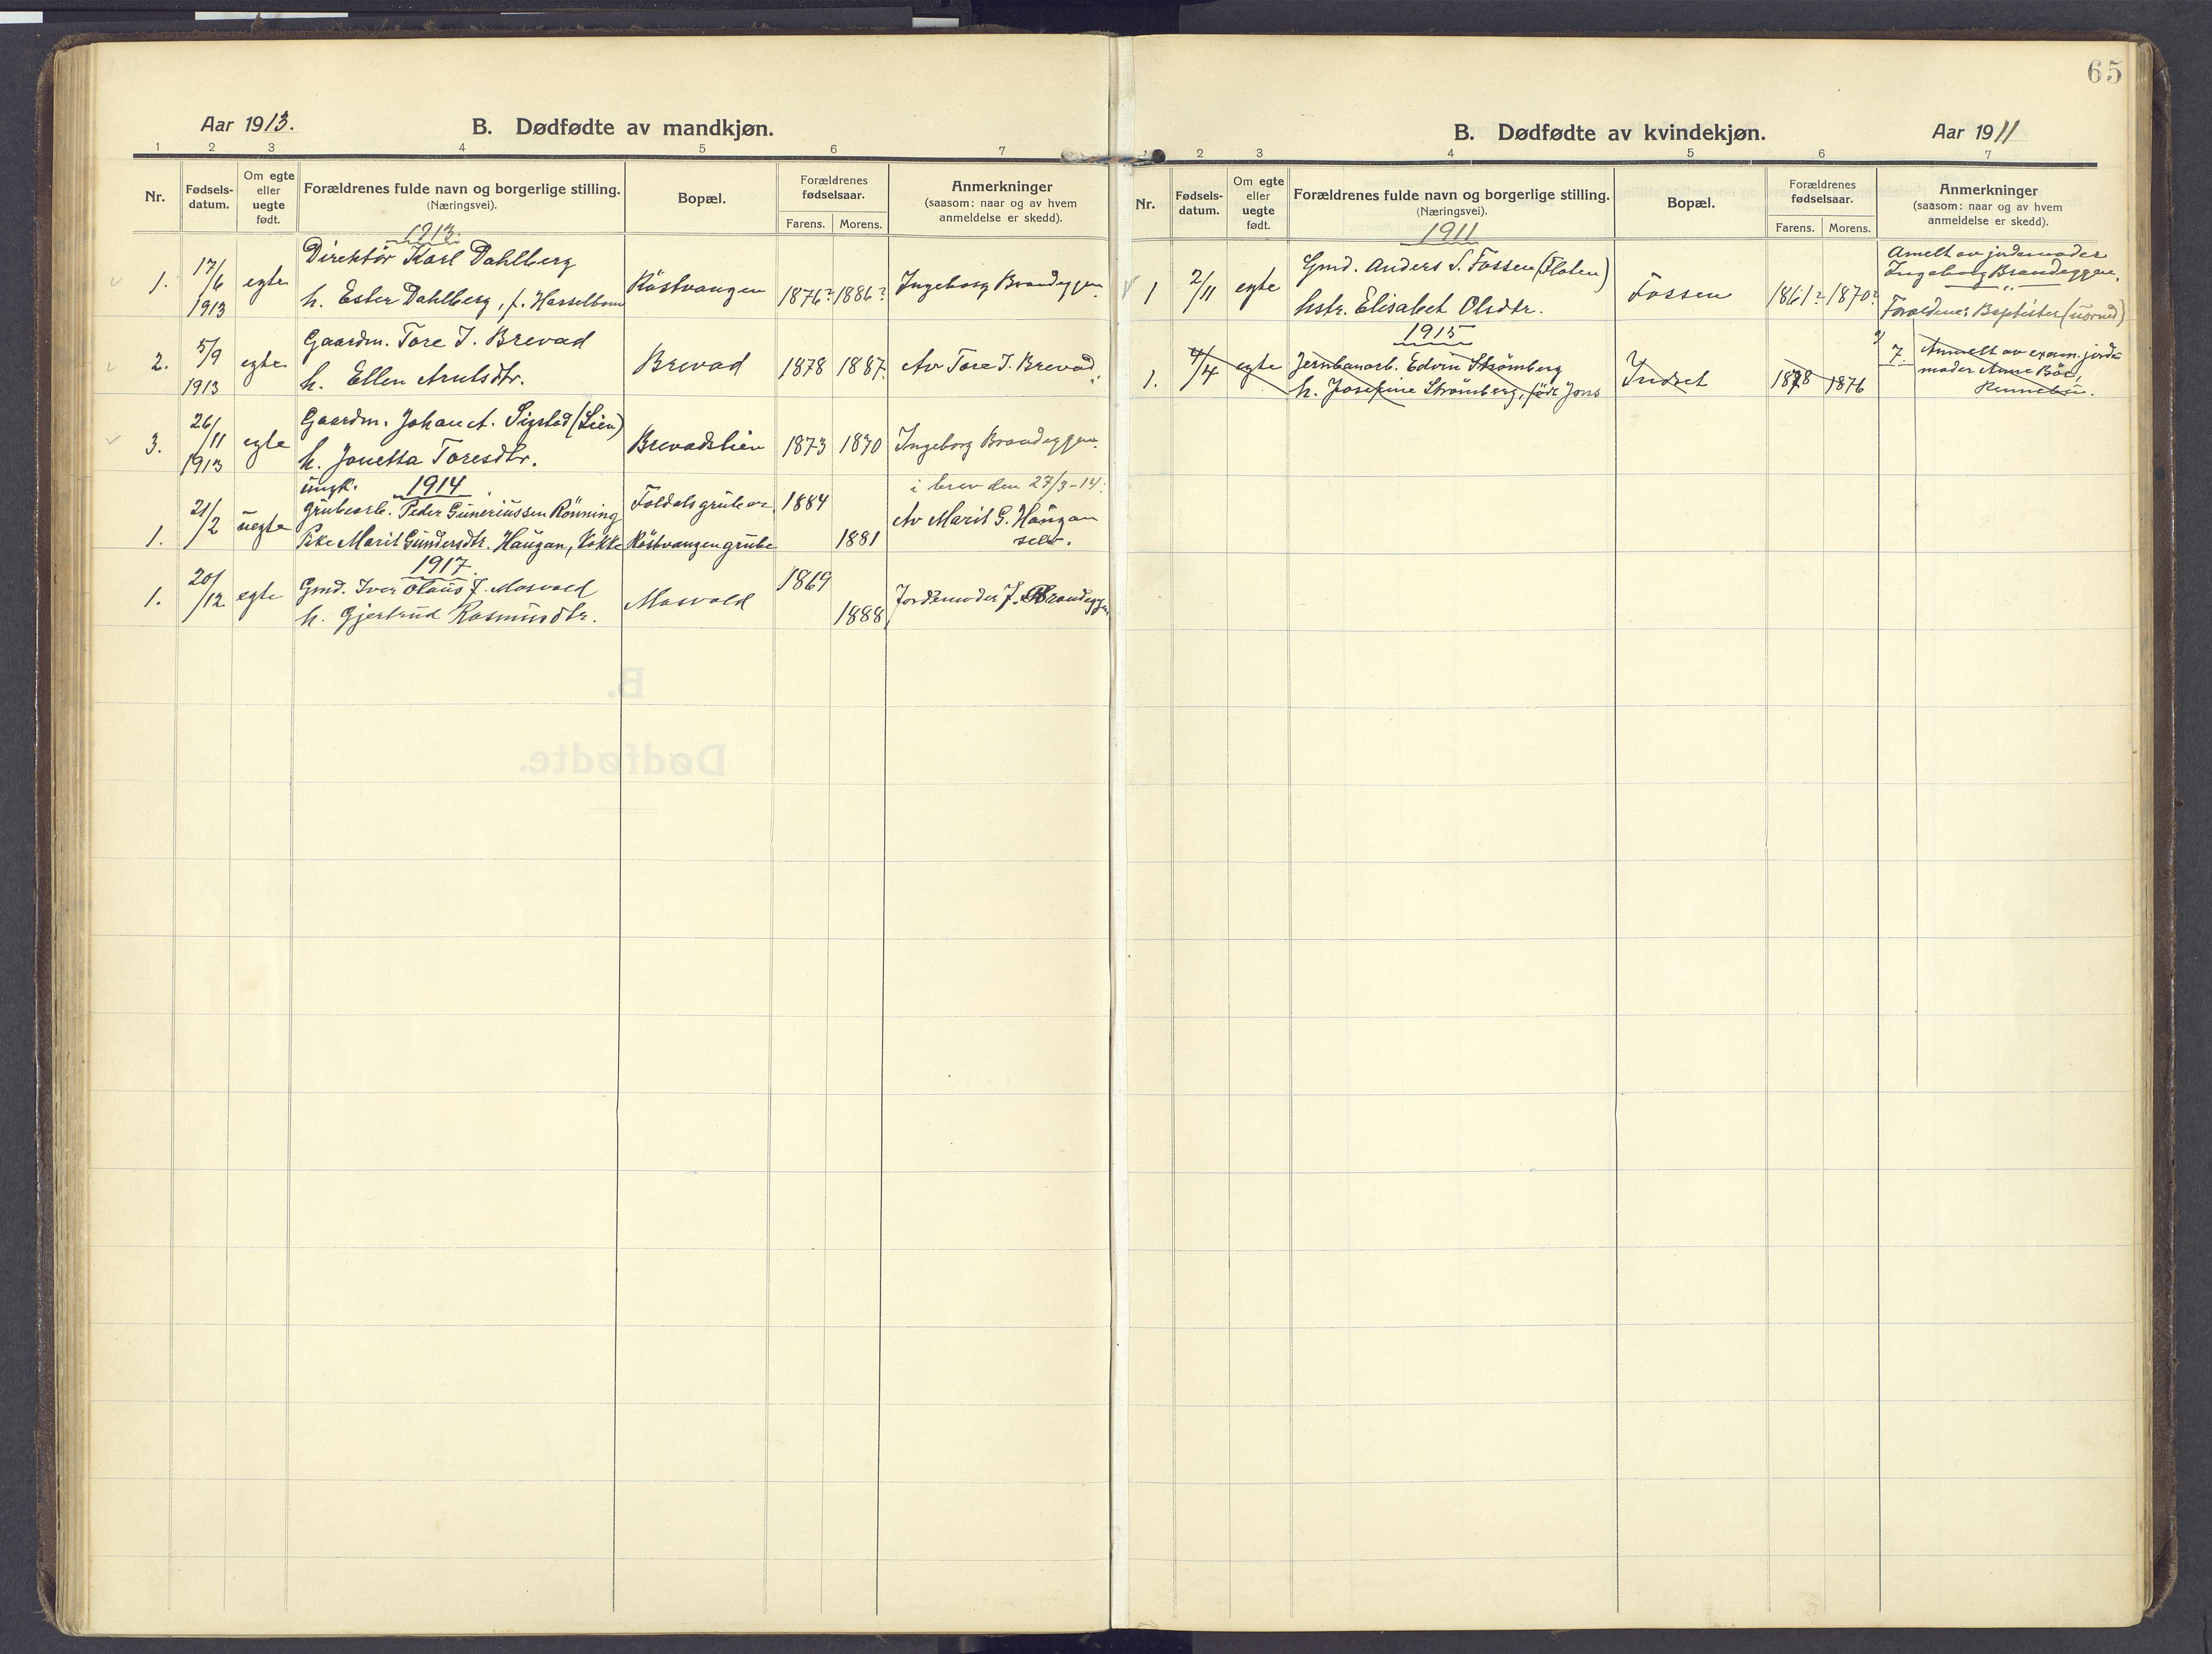 65
Aar 1913.
B. Dødfødte av mandkjøn.
1 2 3 4 5 6 7
Nr.
Fødsels-
datum.
Om egte
eller
uegte
født.
Forældrenes fulde navn og borgerlige stilling.
(Næringsvei).
Bopæl.
Forældrenes
fødselsaar.
Farens. Morens.
Anmerkninger
(saasom: naar og av hvem
anmeldelse er skedd).
1913.
1. 17/6 1913 egte Direktör Karl Dahlberg
h. Ester Dahlberg, f. Hasselbom Röstvangen 1876? 1886? Ingeborg Brandeggen
2. 5/9 1913 egte Gaardm. Tore J. Brevad
h. Ellen Arntsdtr. Brevad 1878 1887. Av Tore J. Brevad.
3. 26/11 1913 egte Gaardm. Johan A. Sigstad (Lien)
h. Jonetta Toresdtr. Brevadslien 1873 1870 Ingeborg Brandeggen.
1914
i brev den 27/3-14.
1. 21/2 uegte ungk. grubearb. Peder Guneriussen Rönning Foldals gruber 1884
Pike Marit Gundersdtr. Haugan, kokke Röstvangen grube 1881 Av Marit G. Haugan
selv.
1917.
1. 20/12 egte Gmd. Iver Olaus J. Mosvold 1869
h. Gjertrud Rasmusdtr. Mosvold 1888 Jordemoder J. Brandeggen
B. Dødfødte av kvindekjøn.
Aar 1911
1 2 3 4 5 6 7
Nr.
Fødsels-
datum.
Om egte
eller
uegte
født.
Forældrenes fulde navn og borgerlige stilling.
(Næringsvei).
Bopæl.
Forældrenes
fødselsaar.
Farens. Morens.
Anmerkninger
(saasom: naar og av hvem
anmeldelse er skedd).
1911
1 2/11 egte Gmd. Anders S. Fossen (Floten)
hstr. Elisabet Olsdtr. Fossen 1861? 1870? Amelt av jordemoder
Ingeborg Brandeggen.
Foreldrene: Baptister
1915
1. /4 egte Jernbanearb. Edvin Strömberg
h. Josefine Strömberg, född Jons Indset 1878 1876 7. Anmelt av exam. jorde-
moder Anne Böe,
Rennebu.
B.
Dødfødte.